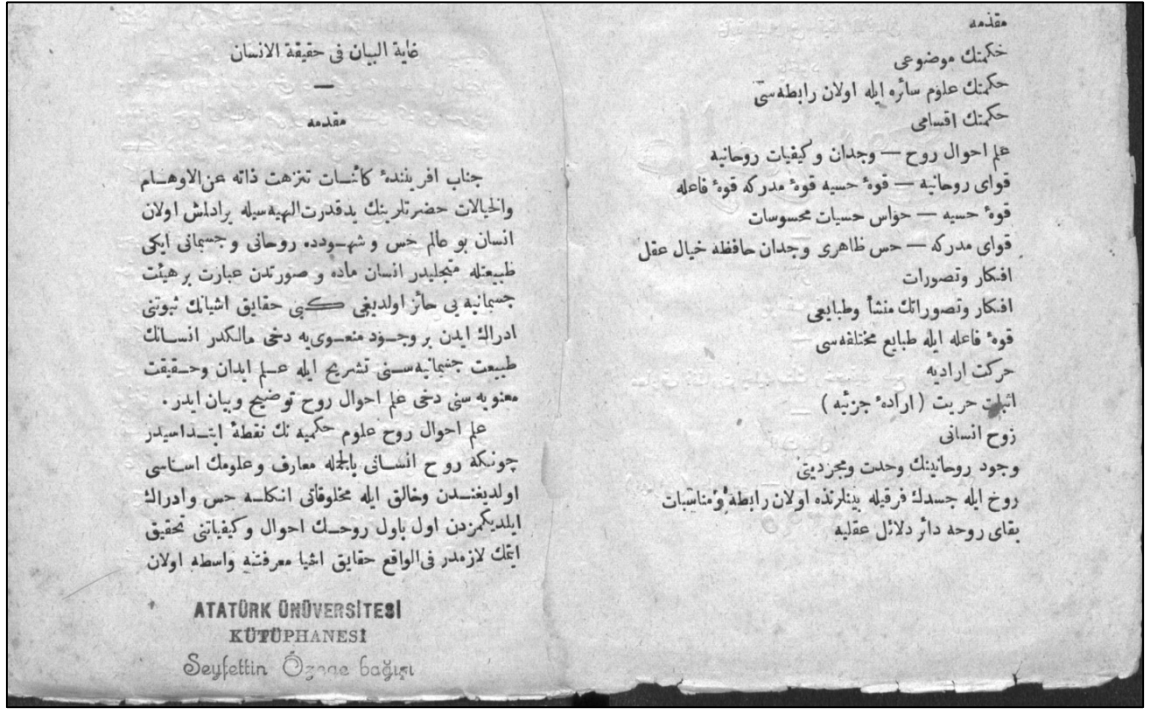 مقدمه
حكمتك موضوعى
حكمتك علوم سائره ايله اولان رابطه سى
حكمتك اقسامى
علم احوال روح — وجدان وكيفيات روحانيه
قواى روحانيه — قوهٔ حسيه قوهٔ مدركه قوهٔ فاعله
قوهٔ حسيه — حواس حسيات محسوسات
قواى مدركه — حس ظاهرى وجدان حافظه خيال عقل
افكار وتصورات
افكار وتصوراتك منشأ وطبايعى
قوهٔ فاعله ايله طبايع مختلفه سى
حركت اراديه
اثبات حريت ( ارادهٔ جزئيه )
روح انسانى
وجود روحانينك وحدت ومجرديتى
روح ايله جسدك فرقيله بينلرنده اولان رابطه ومناسبات
بقاى روحه دائر دلائل عقليه
غاية البيان فى حقيقة الانسان
—
مقدمه
جناب آفرينندهٔ كائنات تنزهت ذاته عن الاوهام
والخيالات حضرتلرينك يدقدرت الهيه سيله يرادلمش اولان
انسان بو عالم حس و شهودده روحانى وجسمانى ايكى
طبيعتله متجليدر انسان ماده و صورتدن عبارت برهيئت
جسمانيه يى حائز اولديغى كبى حقايق اشيانك ثبوتنى
ادراك ايدن بر وجود معنوى يه دخى مالكدر انسانك
طبيعت جسمانيه سنى تشريح ايله علم ابدان وحقيقت
معنويه سنى دخى علم احوال روح توضيح وبيان ايدر .
علم احوال روح علوم حكميه نك نقطهٔ ابتداسيدر
چونكه روح انسانى بالجمله معارف وعلومك اساسى
اولديغندن وخالق ايله مخلوقاتى انكله حس وادراك
ايلديكمزدن اول باول روحك احوال وكيفياتنى تحقيق
ايتمك لازمدر فى الواقع حقايق اشيا معرفتنه واسطه اولان
ATATÜRK ÜNÜVERSİTESİ
KÜTÜPHANESİ
Seyfettin Özege bağışı